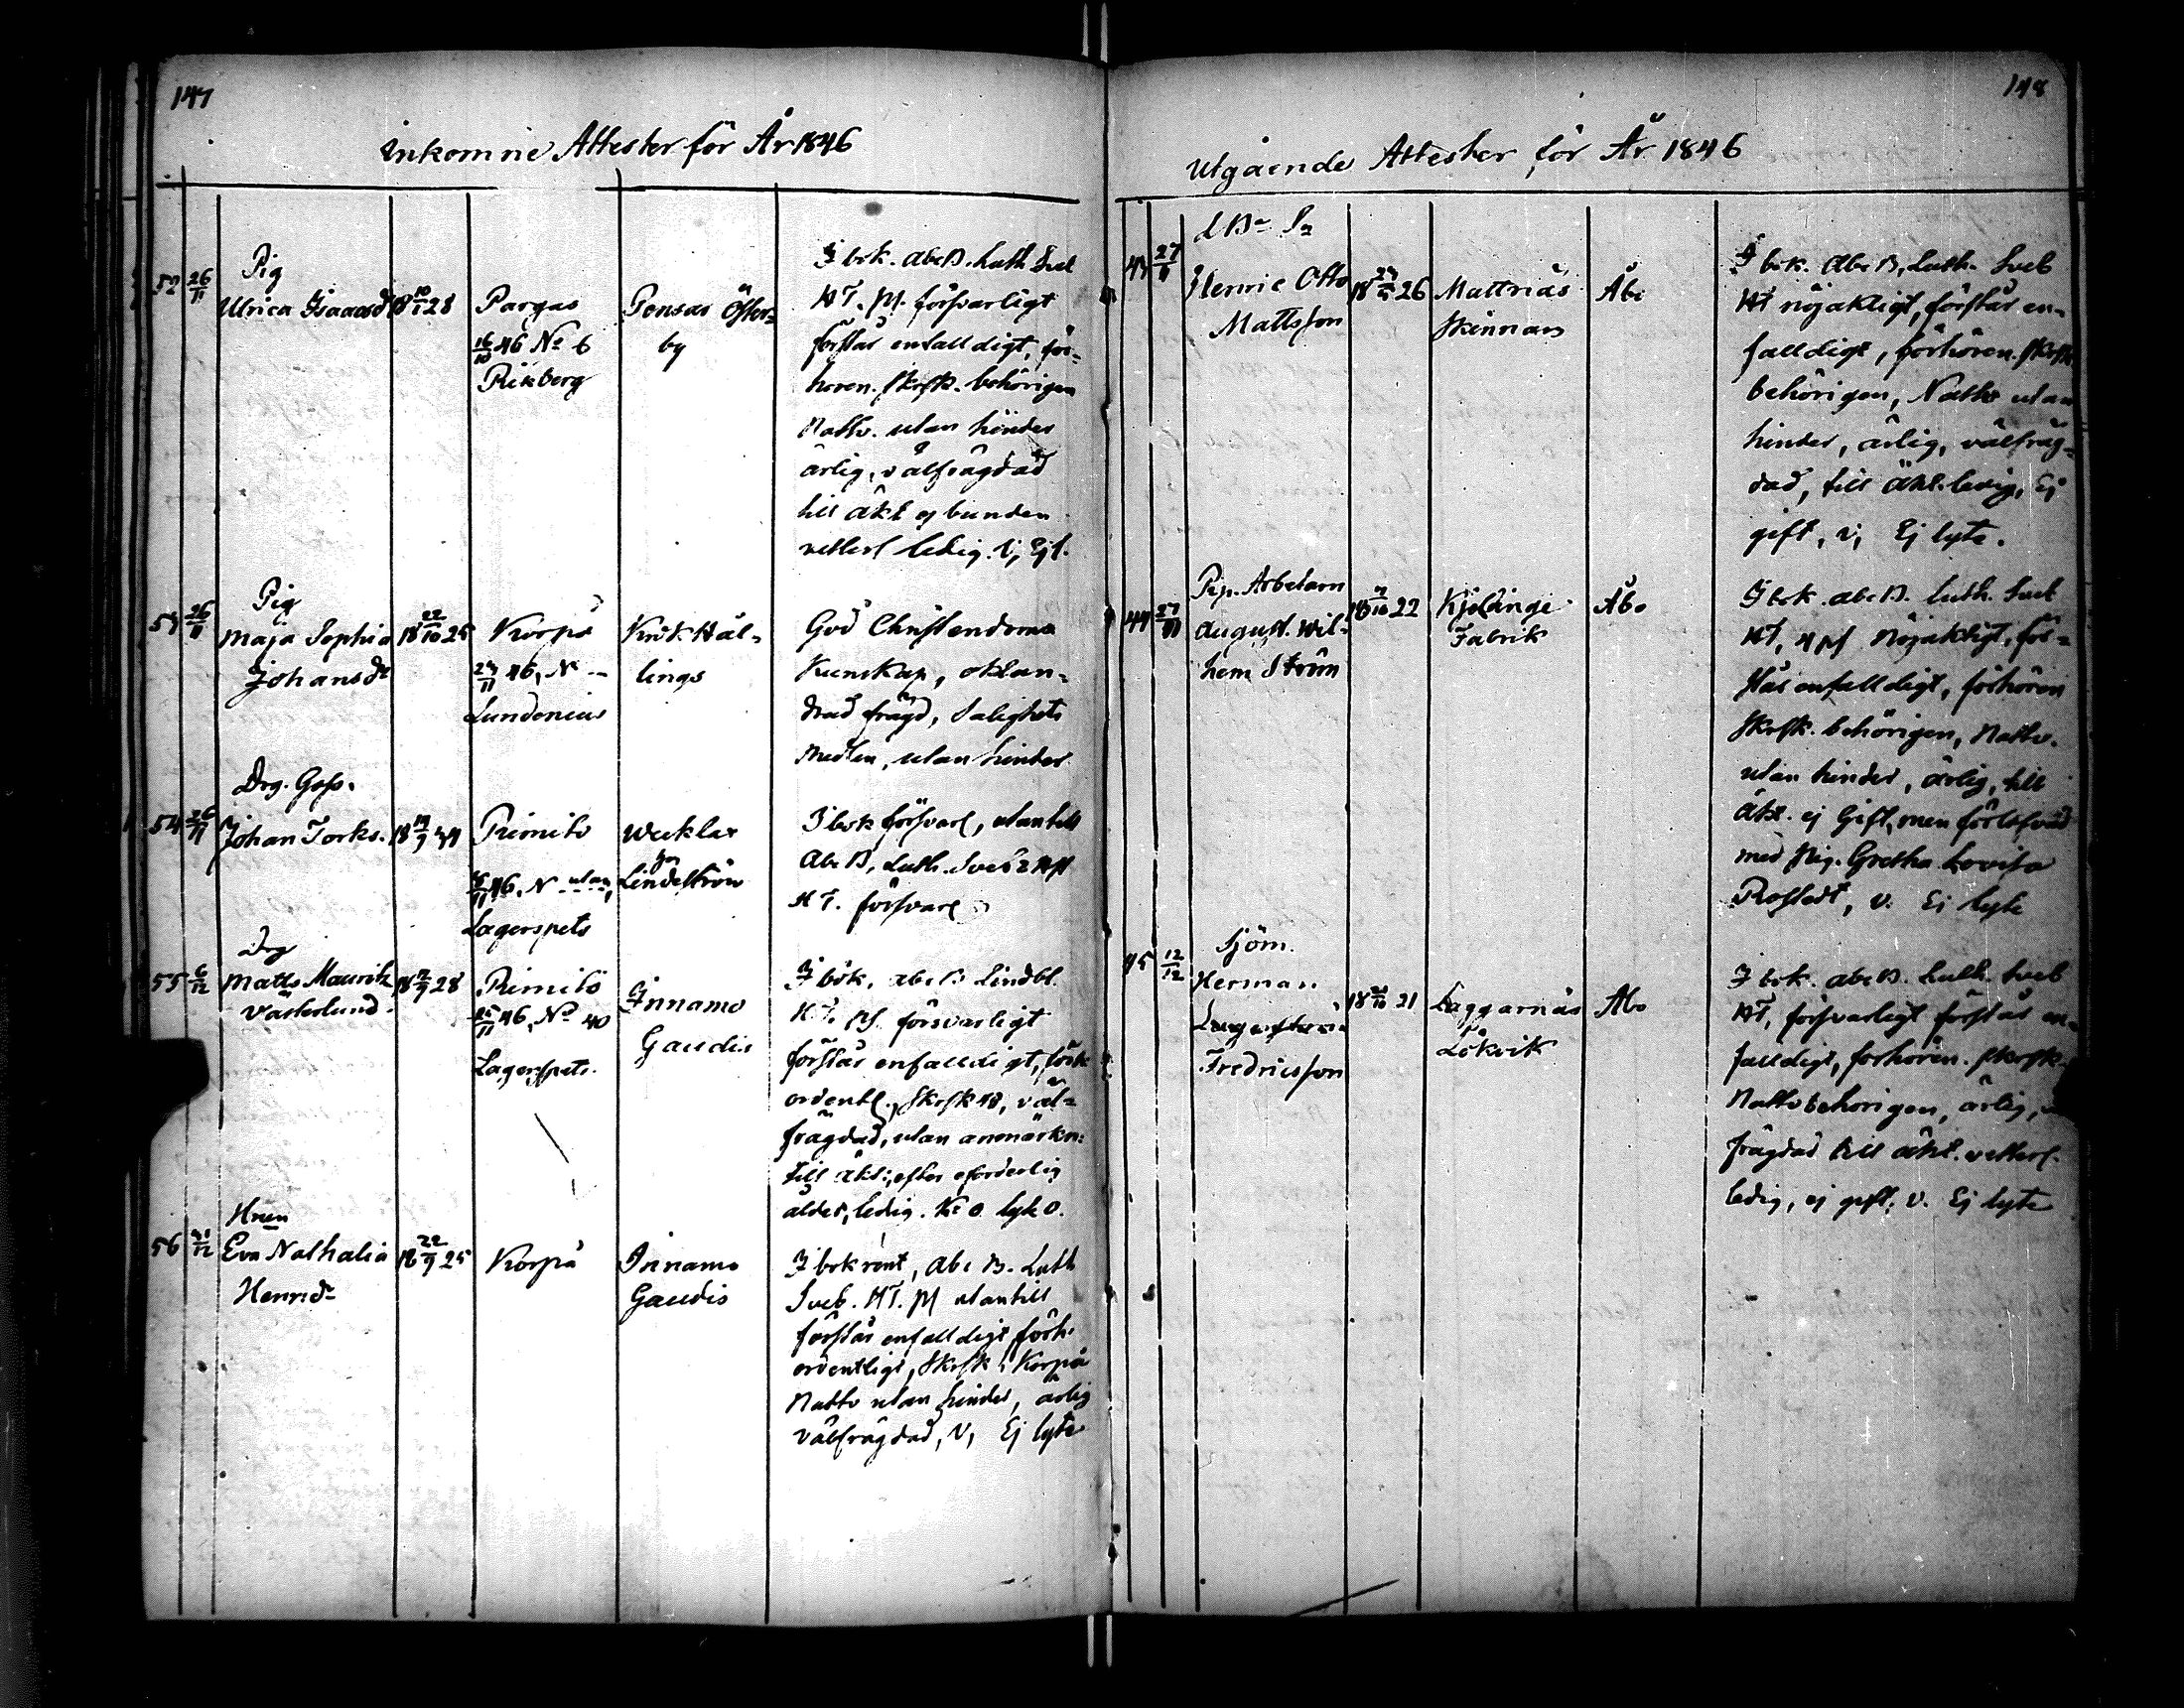 147
Inkomne Attester för År 1846
52 26/11
Pig
Ulrica Isaacsdr
18 10/1 28
Pargas
16/10 46 No 6
Rikberg
Pensar Öster=
by
I bok. AbcB. Luth Sveb
HT. pſ. försvarligt
förstår enfalldigt, för=
hören. skrſk. behörigen
Nattv. utan hinder
ärlig, välfrägdad
till äkt ej bunden
vetterl ledig. V, Ej l.
53 26/11
Pig
Maja Sophia
Johansdr
18 22/10 25
Korpo
23/11 46, N --
Lundenius
Krok Häl=
lings
God Christendoms
Kunskap, oklan=
drad frägd, Salighets
Medlen, utan hinder
54 26/11
Drg. Goss.
Johan Torks.
18 19/9 34
Rimito
46, N utan,
Lagerspets
Weeklax
Lindström
I bok försvarl, utantill
Abc B, Luth. Sveb 2 Hſt
HT. försvarl
55 6/12
Drg
Matts Mauritz
Vasterlund
18 28
Rimito
25/11 46, No 40
Lagerspets.
Innamo
Gaudis
I bok, abc B Lindbl.
HT. pſ försvarligt
förstår enfalldigt, förh
ordentl., skrſk, väl=
frägdad, utan anmärkn:
till äkt:, efter erforderlig
ålder, ledig. Kr 0. lyte 0.
56 31/12
Hnen
Eva Nathalia
Henricdr
18 22/9 25
Korpo
Innamo
Gaudis
I bok rent, Abc B. Luth
Sveb. HT. pſ utantill
förstår enfalldigt förh.
ordentligt, Skrſk i Korpo
Nattv utan hinder, ärlig
välfrägdad, V, Ej lyte
148
Utgående Attester för År 1846
43 27/
Henric Otto
Mattsson
18 23/5 26
Mattnäs
Skinnars
Åbo
I bok. Abc B, Luth. Sveb
HT nöjaktligt, förstår en=
falldigt, förhören. skrſk
behörigen, Nattv utan
hinder, ärlig, välfräg=
dad, till äkt. ledig, Ej
gift, V, Ej lyte.
44 27/11
Pip. Arbetarn
August Wil=
helm Ström
18 7/10 22
Kjoldinge
Fabrik
Åbo
I bok. abc B. Luth. Sveb
HT, 4 pſ Nöjaktligt, för=
står enfalldigt, förhören
Skrſk. behörigen, Nattv.
utan hinder, ärlig, till
äkt. ej Gift, men förlofvad
med Pig. Gretha Lovisa
Rostedt, V. Ej lyte
45 12/12
Sjöm.
Herman
Fredricsson
18 21
Laggarnäs
Lökvik
Åbo
I bok. abc B. Luth. Sveb
HT, försvarligt förstår en=
falldigt, förhören. skrſk.
Nattv behörigen, ärlig,
frägdad till äkt. vetterl.
ledig, ej gift, V. Ej lyte